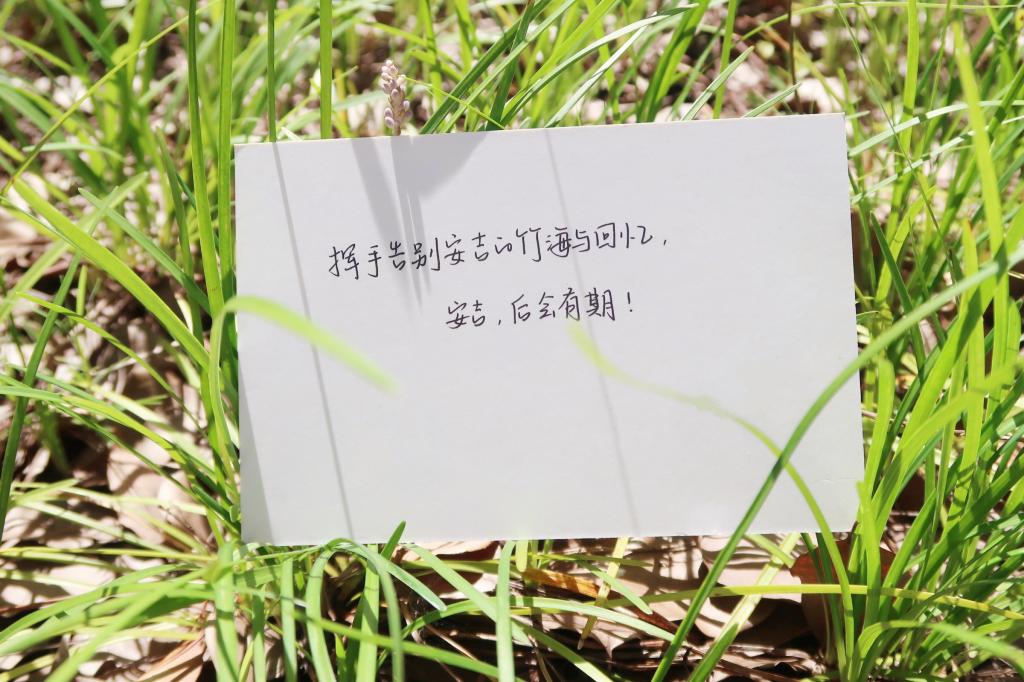 挥手告别安吉的竹海与回忆，
安吉，后会有期！